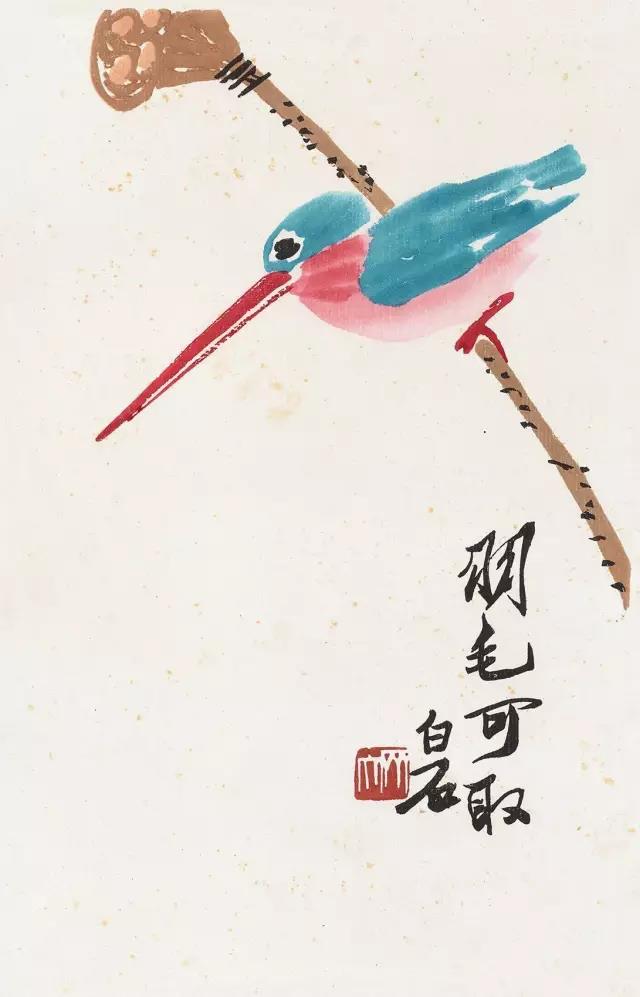 羽毛可取
白石